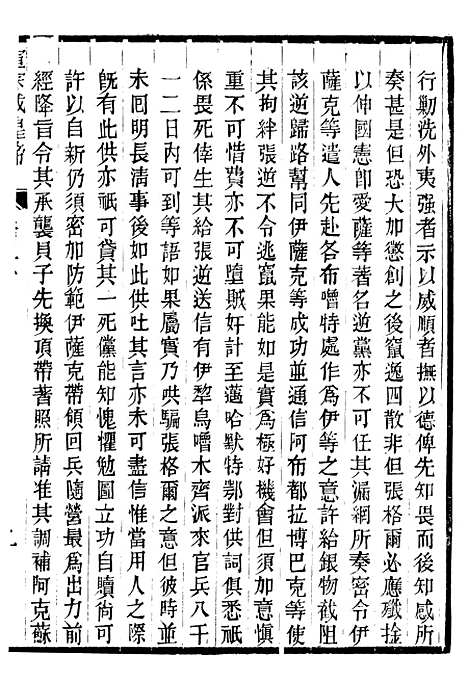 行勦洗外夷强者示以威順者撫以德俾先知畏而後知感所
奏甚是但恐大加懲創之後竄逸四散非但張格爾必應殲擒
以伸國憲卽愛薩等著名逆黨亦不可任其漏網所奏密令伊
薩克等遣人先赴各布嚕特處作爲伊等之意許給銀物截阻
該逆歸路幫同伊薩克等成功並通信阿布都拉博巴克等使
其拘絆張逆不令逃竄果能如是實爲極好機會但須加意愼
重不可惜費亦不可墮賊奸計至邁哈默特鄂對供詞俱悉祇
係畏死倖生其給張逆送信有伊犂烏嚕木齊派來官兵八千
一二日內可到等語如果屬實乃哄騙張格爾之意但彼時並
未囘明長淸事後如此供吐其言亦未可盡信惟當用人之際
旣有此供亦祇可貸其一死儻能知愧懼勉圖立功自贖尙可
許以自新仍須密加防範伊薩克帶領回兵隨營最爲出力前
經降旨令其承襲貝子先換頂帶著照所請准其調補阿克蘇
宣宗成皇帝
九